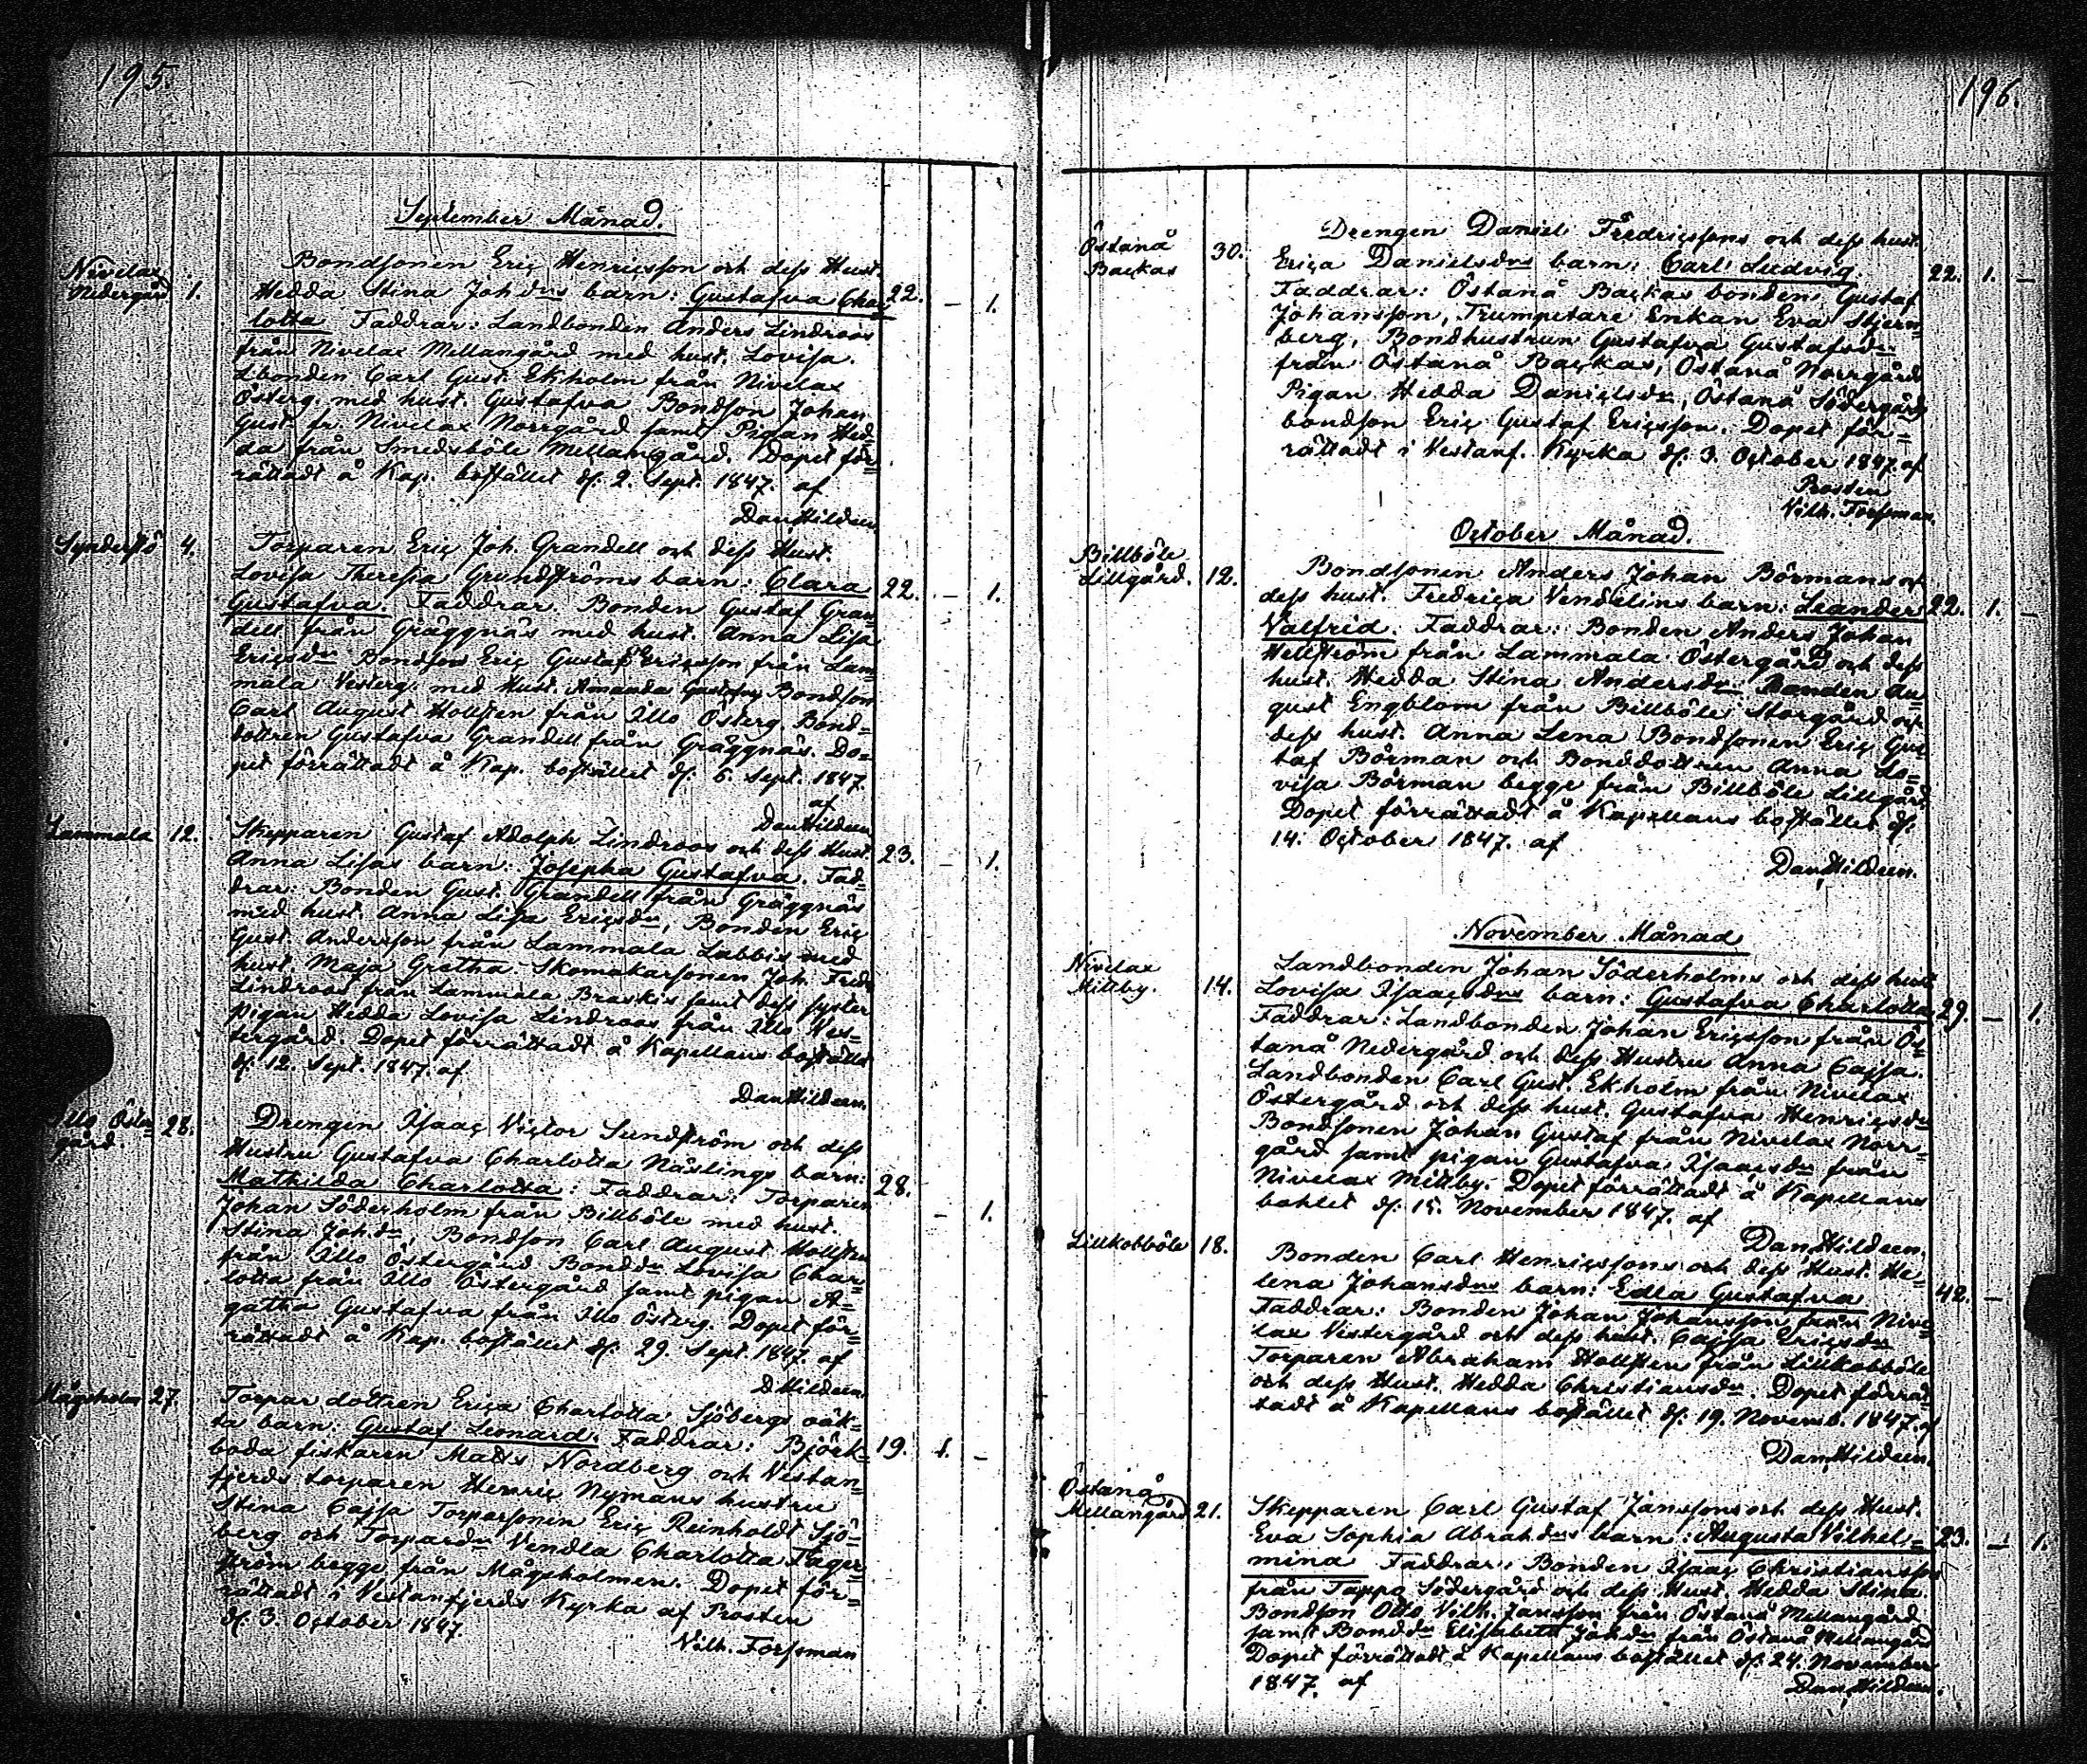 195.
September Månad.
Nivelax
Nedergård 1.
Bondsonen Eric Henricsson och dess Hust.
Hedda Stina Johdrs barn: Gustafva Char= 22. — 1.
lotta Faddrar: Landbonden Anders Lindroos
från Nivelax Mellangård med hust. Lovisa.
Lbonden Carl Gust. Ekholm från Nivelax
Österg. med hust. Gustafva Bondson Johan
Gust. fr. Nivelax Norrgård samt Pigan Hed=
da från Smedsböle Mellangård. Dopet för=
rättadt å Kap. bostället d: 2. Sept. 1847. af
Dan Hildeen
Syndersö 4.
Torparen Eric Joh. Grandell och dess Hust.
Lovisa Theresia Grundströms barn: Clara 22. — 1.
Gustafva. Faddrar. Bonden Gustaf Gran=
dell från Gräggnäs med hust. Anna Lisa
Ericsdr Bondson Eric Gustaf Ericsson från Lam=
mala Vesterg. med Hust. Amanda Gustafva Bondson
Carl August Hollsten från Illo Österg. Bond=
dottren Gustafva Grandell från Gräggnäs. Do=
pet förrättadt å Kap. bostället d: 5. Sept. 1847.
af
Dan Hildeen
Lammala 12.
Skepparen Gustaf Adolph Lindroos och dess Hust.
Anna Lisas barn: Josepha Gustafva. Fad= 23. — 1.
drar: Bonden Gust. Grandell från Gräggnäs
med hust. Anna Lisa Ericsdr, Bonden Eric
Gust. Andersson från Lammala Labbis med
hust. Maja Gretha Skomakarsonen Joh. Fredr
Lindroos från Lammala Braskis samt dess syster
pigan Hedda Lovisa Lindroos från Illo Ves=
tergård. Dopet förrättadt å Kapellans bostället
d: 12. Sept. 1847. af
Dan Hildeen.
Illo Öster=
gård. 28.
Drengen Isaac Victor Sundström och dess
Hustru Gustafva Charlotta Näslings barn:
Mathilda Charlotta: Faddrar: Torparen 28. — 1.
Johan Söderholm från Billböle med hust.
Stina Johdr, Bondson Carl August Hollsten
från Illo Östergård Bonddr Lovisa Char=
lotta från Illo Östergård samt pigan A=
gatha Gustafva från Illo Österg. Dopet för=
rättadt å Kap. bostället d: 29. Sept. 1847. af
D Hildeen.
Mågsholm 27.
Torpar dottren Erica Charlotta Sjöbergs oäk=
ta barn: Gustaf Leonard. Faddrar: Björk= 19. 1. —
boda fiskaren Matts Nordberg och Vestan=
fjerds torparen Henric Nymans hustru
Stina Cajsa Torparsonen Eric Reinholdt Sjö=
berg och Torpardr Vendla Charlotta Fager=
ström begge från Mågsholmen. Dopet för=
rättadt i Vestanfjerds Kyrka af Prosten
d: 3. October 1847.
Vilh. Forssman
196.
Östanå
Backas 30.
Drengen Daniel Fredricssons och dess hust.
Erica Danielsdrs barn: Carl Ludvig. 22. 1. —
Faddrar: Östanå Backas bonden Gustaf
Johansson, Trumpetare Enkan Eva Stjern=
berg, Bondhustrun Gustafva Gustafsdr
från Östanå Backas, Östanå Norrgårds
Pigan Hedda Danielsdr, Östanå Södergårds
bondson Eric Gustaf Ericsson. Dopet för=
rättadt i Vestanf. Kyrka d: 3. October 1847. af
Prosten
Vilh. Forssman.
October Månad.
Billböle
Lillgård. 12.
Bondsonen Anders Johan Börmans och
dess hust. Fredrica Vendelins barn: Leander 22. 1. —
Valfrid. Faddrar: Bonden Anders Johan
Hellström från Lammala Östergård och dess
hust. Hedda Stina Andersdr. Bonden Au=
gust Engblom från Billböle Storgård och
dess hust. Anna Lena Bondsonen Eric Gus=
taf Börman och Bonddottren Anna Lo=
visa Börman begge från Billböle Lillgård
Dopet förrättadt å Kapellans bostället d:
14. October 1847. af
Dan Hildeen.
November Månad
Nivelax
Mittby. 14.
Landbonden Johan Söderholms och dess hust
Lovisa Isaacsdrs barn: Gustafva Charlotta 29. — 1.
Faddrar: Landbonden Johan Ericsson från Ös=
tanå Nedergård och dess Hustru Anna Cajsa.
Landbonden Carl Gust. Ekholm från Nivelax
Östergård och dess hust. Gustafva Henricsdr
Bondsonen Johan Gustaf från Nivelax Norr=
gård samt pigan Gustafva Isaacsdr från
Nivelax Mittby. Dopet förrättadt å Kapellans
bohlet d: 15. November 1847. af
Dan Hildeen.
Lillkobböle 18.
Bonden Carl Henricssons och dess Hust. He=
lena Johansdrs barn: Edla Gustafva 42. —
Faddrar: Bonden Johan Johansson från Nive=
lax Vestergård och dess hust. Cajsa Ericsdr
Torparen Abraham Hollsten från Lillkobböle
och dess Hust. Hedda Christiansdr. Dopet förrät=
tadt å Kapellans bostället d: 19. Novemb. 1847. af
Dan Hildeen.
Östanå
Mellangård 21.
Skepparen Carl Gustaf Janssons och dess Hust.
Eva Sophia Abrahdrs barn: Augusta Vilhel= 23. — 1.
mina Faddrar: Bonden Isaac Christiansson
från Tappo Södergård och dess Hust. Hedda Stina
Bondson Otto Vilh. Jansson från Östanå Mellangård
samt Bonddr Elisabeth Johdr från Östanå Mellangård
Dopet förrättadt å Kapellans bostället d: 24. November
1847. af
Dan Hildeen.